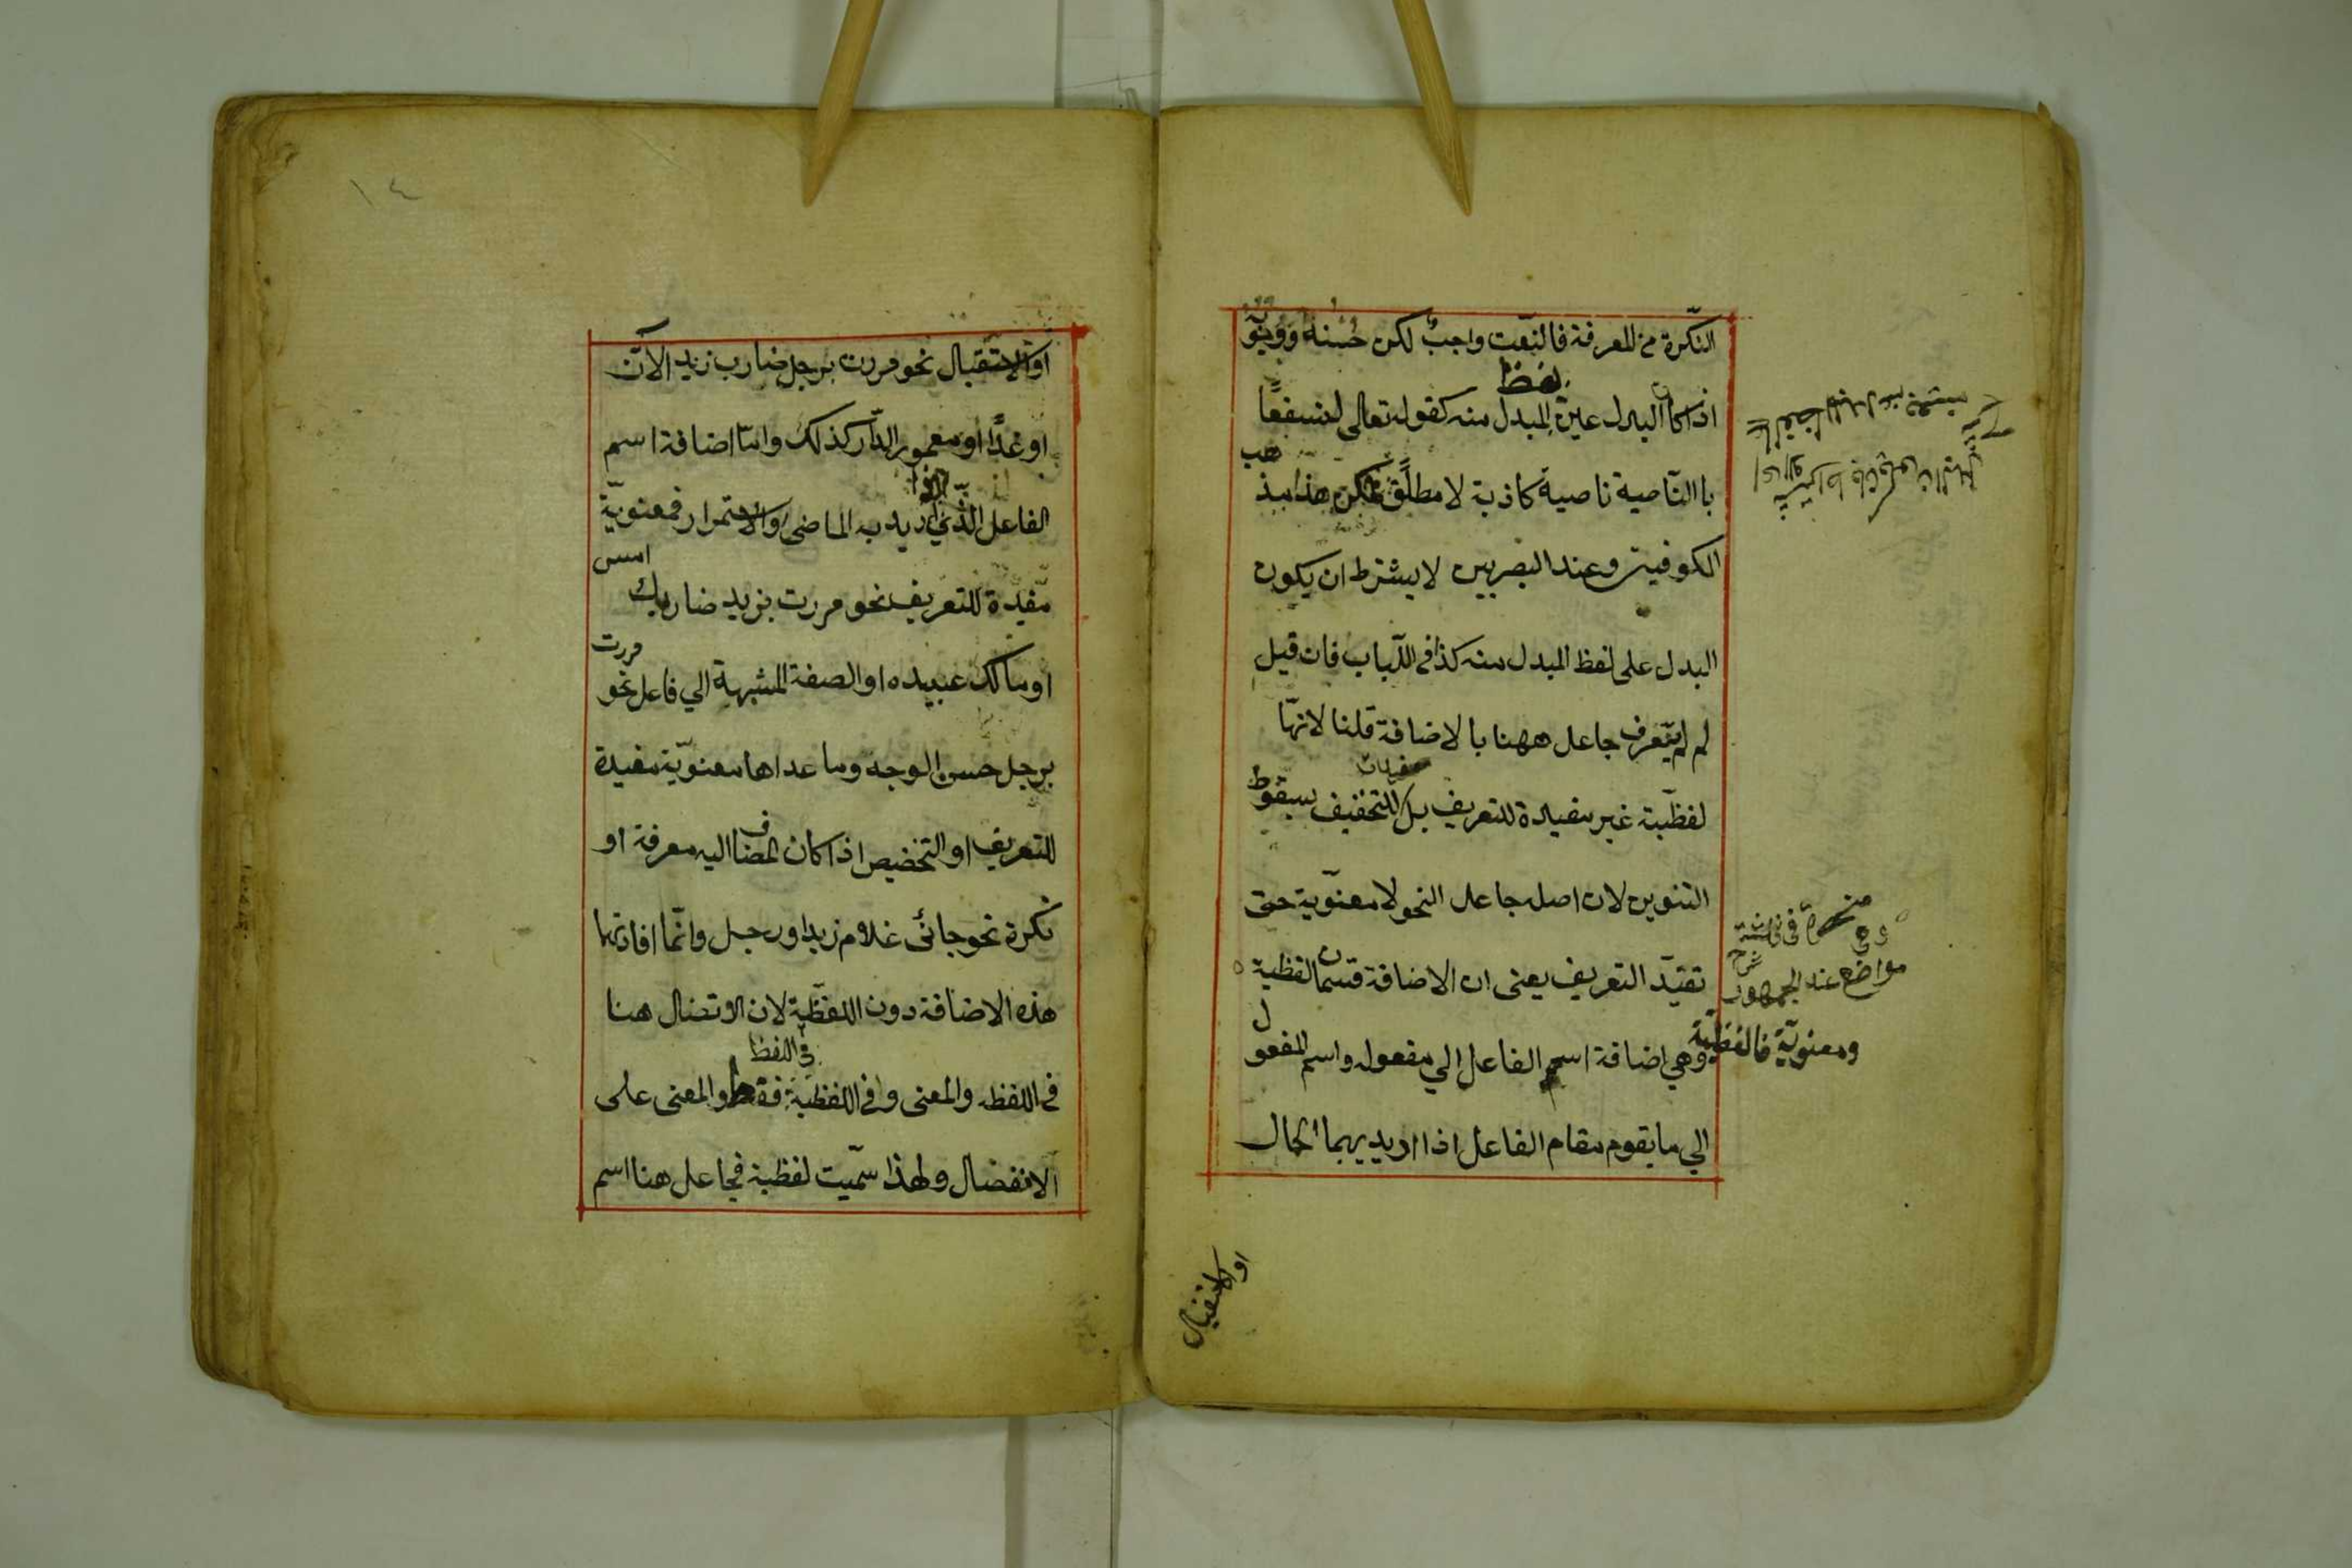 النكرة من المعرفة فالنعت واجب لكن حسنه ووجوبه
لفظ
اذا كان البدل عين المبدل منه كقوله تعالى لنسفعا
باالناصية ناصية كاذبة لا مطلق لكن هذا مذهب
الكوفيين وعند البصريين لا يشترط ان يكون
البدل على لفظ المبدل منه كذا في اللباب فان قيل
لم لم يتعرف جاعل ههنا بالاضافة قلنا لانها
لفظية غير مفيدة للتعريف بل للتخفيف بسقوط
التنوين لان اصله جاعل النحو لا معنوية حتى
تفيد التعريف يعنى ان الاضافة قسمان لفظية
ومعنوية فاللفظية
وهي اضافة اسم الفاعل الي مفعوله واسم المفعول
الي ما يقوم مقام الفاعل اذا اريد بهما الحال
وهي منحصرة في ثلثة
مواضع عند الجمهور
شرح
او الاستقبال
١٤
او الاستقبال نحو مررت برجل ضارب زيد الآن
او غدًا او معمور الدار كذلك واما اضافة اسم
الفاعل الذي اريد به الماضى او الاستمرار فمعنوية
مفيدة للتعريف نحو مررت بزيد ضاربك امس
او مالك عبيده او الصفة المشبهة الي فاعل نحو مررت
برجل حسن الوجه وما عداها معنوية مفيدة
للتعريف او التخصيص اذا كان المضاف اليه معرفة او
نكرة نحو جائنى غلام زيد او رجل وانما افادتها
هذه الاضافة دون اللفظية لان الاتصال هنا
في اللفظ
في اللفظ والمعنى وفي اللفظية فقط والمعنى على
الانفصال ولهذا سميت لفظية فجاعل هنا اسم